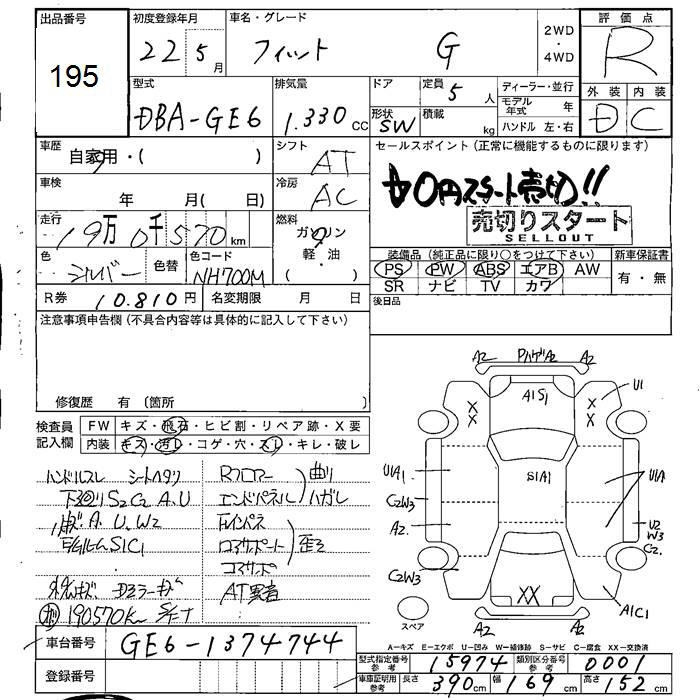 出品番号
195
初度登録年月
22 5月
車名・グレード
フィット G
2WD
・
4WD
評価点
R
型式
DBA-GE6
排気量
1.330cc
ドア
形状
SW
定員
5人
積載
kg
ディーラー・並行
モデル年式 年
ハンドル 左・右
外装 内装
D C
車歴
自家用・( )
シフト
AT
セールスポイント(正常に機能するものに限ります)
0円スタート売切!!
売切りスタート
SELLOUT
車検
年 月( 日)
冷房
AC
走行
19万0千570km
燃料
ガソリン
軽・油
( )
色
シルバー
色替
色コード
NH700M
装備品(純正品に限り○をつけて下さい)
新車保証書
PS PW ABS エアB AW
SR ナビ TV カワ
有・無
R券 10.810円
名変期限 月 日
後日品
注意事項申告欄(不具合内容等は具体的に記入して下さい)
修復歴 有(箇所 )
検査員記入欄
FW キズ・飛石・ヒビ割・リペア跡・X要
内装 キズ・汚レ・コゲ・穴・スレ・キレ・破レ
ハンドルスレ シートヘタリ
下廻りS2C2 A.U
A.U.W2
S1C1
Dミラーキズ
190570km
Rフロアー
エンドパネル
曲り
ハガレ
コアサポ
歪み
A2 PハゲA2 A2
A1S1
U1
X X
X X
U1A1
S1A1
U1A
C2W3
A2
U2
W3
C2
C2W3
XX
A1C1
スペア
A2 A2
A-キズ E-エクボ U-凹み W-補修跡 S-サビ C-腐食 XX-交換済
車台番号
GE6-1374744
型式指定番号参考
15974
類別区分番号参考
0001
登録番号
車庫証明用参考
長さ 390cm 幅 169cm 高さ 152cm